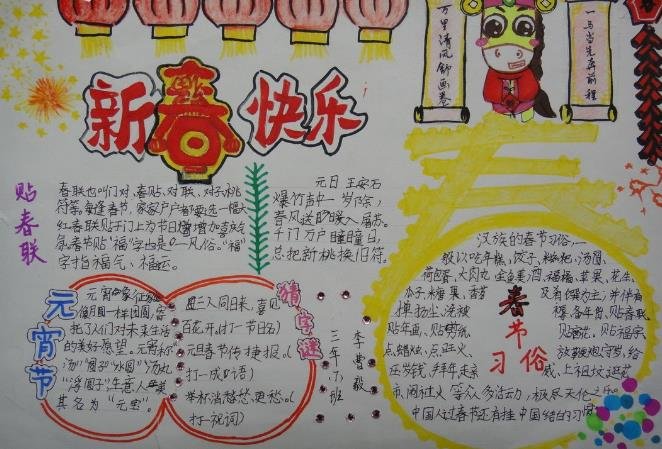 万里清风舒画卷
一马当先奔前程
新春快乐
贴春联
春联也叫门对、春贴、对联、对子,桃
符等。每逢春节,家家户户都要选一幅大
红春联贴于门上为节日增加喜庆气
氛。春节贴“福”字也是
一风俗。“福”
字指福气、福运。
元日 王安石
爆竹声中一岁除,
春风送暖入屠苏。
千门万户曈曈日,
总把新桃换旧符。
元宵节
元宵象征
像月圆一样团圆,寄
托了人们对未来生活
的美好愿望。元宵称
“汤
“浮圆子”,生意人
其名为“元宝”。
猜字谜
三人同日来,喜见
百花开。(打一节日名)
元旦春节传捷报。(
打一成语)
举杯消愁愁更愁。(
打一祝词)
李曹毅
三年六班
春节习俗
汉族的春节习俗,一
般以吃年糕、饺子、糍粑、汤圆、
荷包蛋、大肉丸、全鱼、美酒、福橘、苹果、花生、
瓜子、糖果、香茗
及肴馔为主;并伴有
掸扬尘、洗被
褥、备年货、贴春联、
贴年画、贴剪纸、
贴窗花、贴福字、
点蜡烛、点旺火、
放鞭炮、守岁、给
压岁钱、拜年、走亲
戚、上祖坟、逛花
市、闹社火等众多活动,极尽天伦之乐。
中国人过春节还有挂中国结的习俗